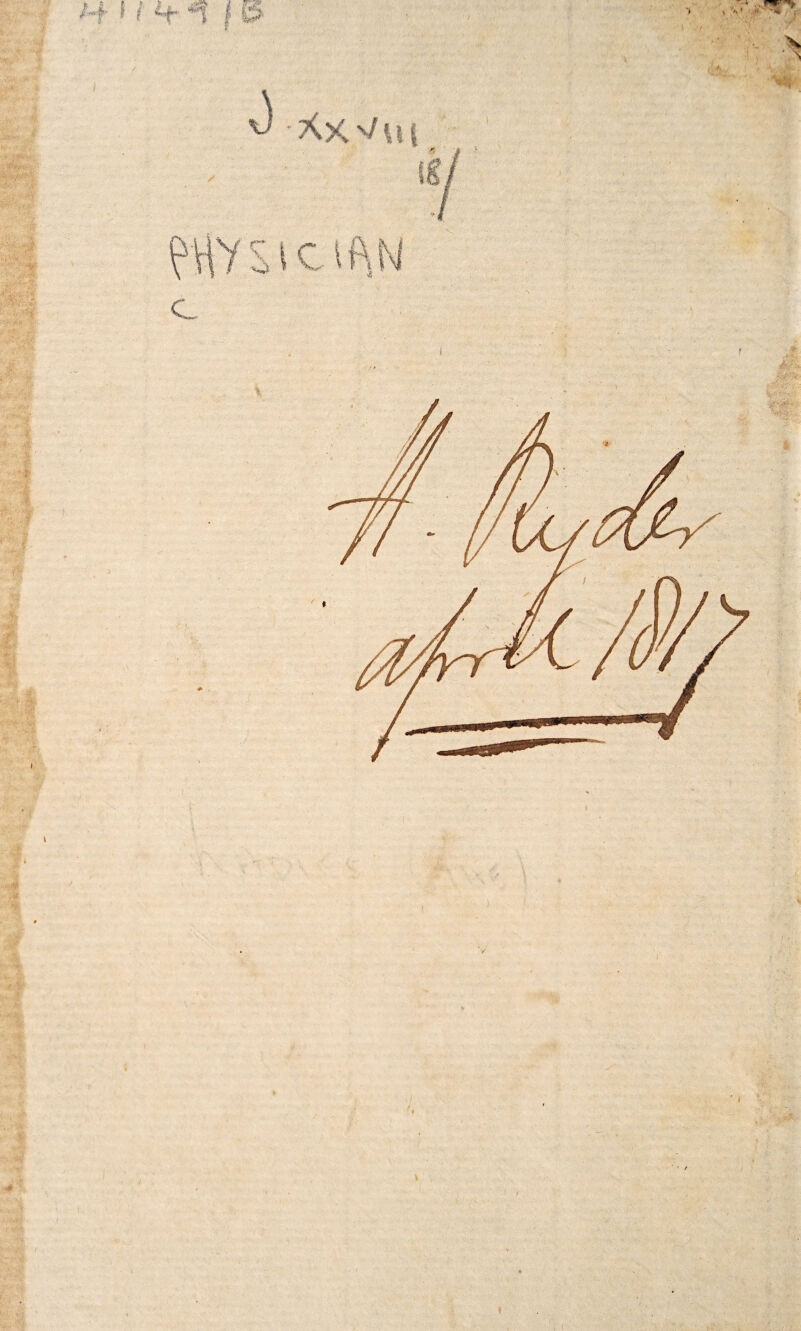 41149/B
J xxviii
18/
PHYSICIAN
C
H. Ryder
april 1817
LADIES (THE)